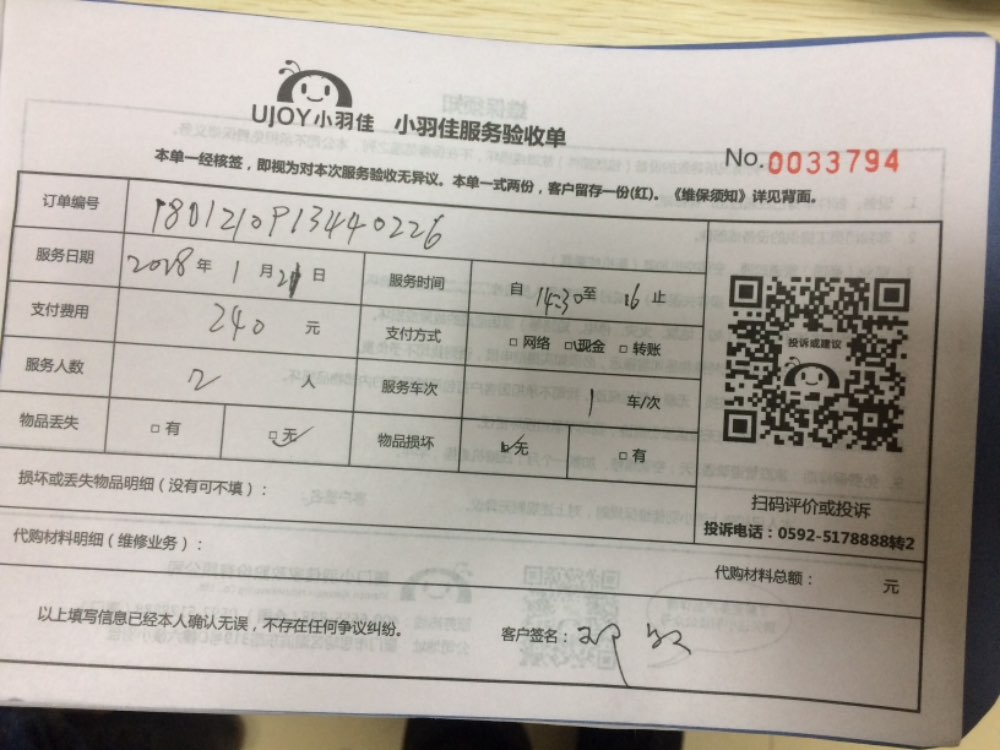 UJOY小羽佳 小羽佳服务验收单
No.0033794
本单一经核签，即视为对本次服务验收无异议。本单一式两份，客户留存一份(红)。《维保须知》详见背面。
订单编号 1801210913440226
服务日期 2018年1月21日 服务时间 自14:30至16止
支付费用 240元 支付方式 □网络 □现金 □转账
服务人数 2人 服务车次 1车/次
物品丢失 □有 □无 物品损坏 □无 □有
损坏或丢失物品明细（没有可不填）：
投诉或建议
扫码评价或投诉
投诉电话：0592-5178888转2
代购材料明细（维修业务）：
代购材料总额： 元
以上填写信息已经本人确认无误，不存在任何争议纠纷。
客户签名：